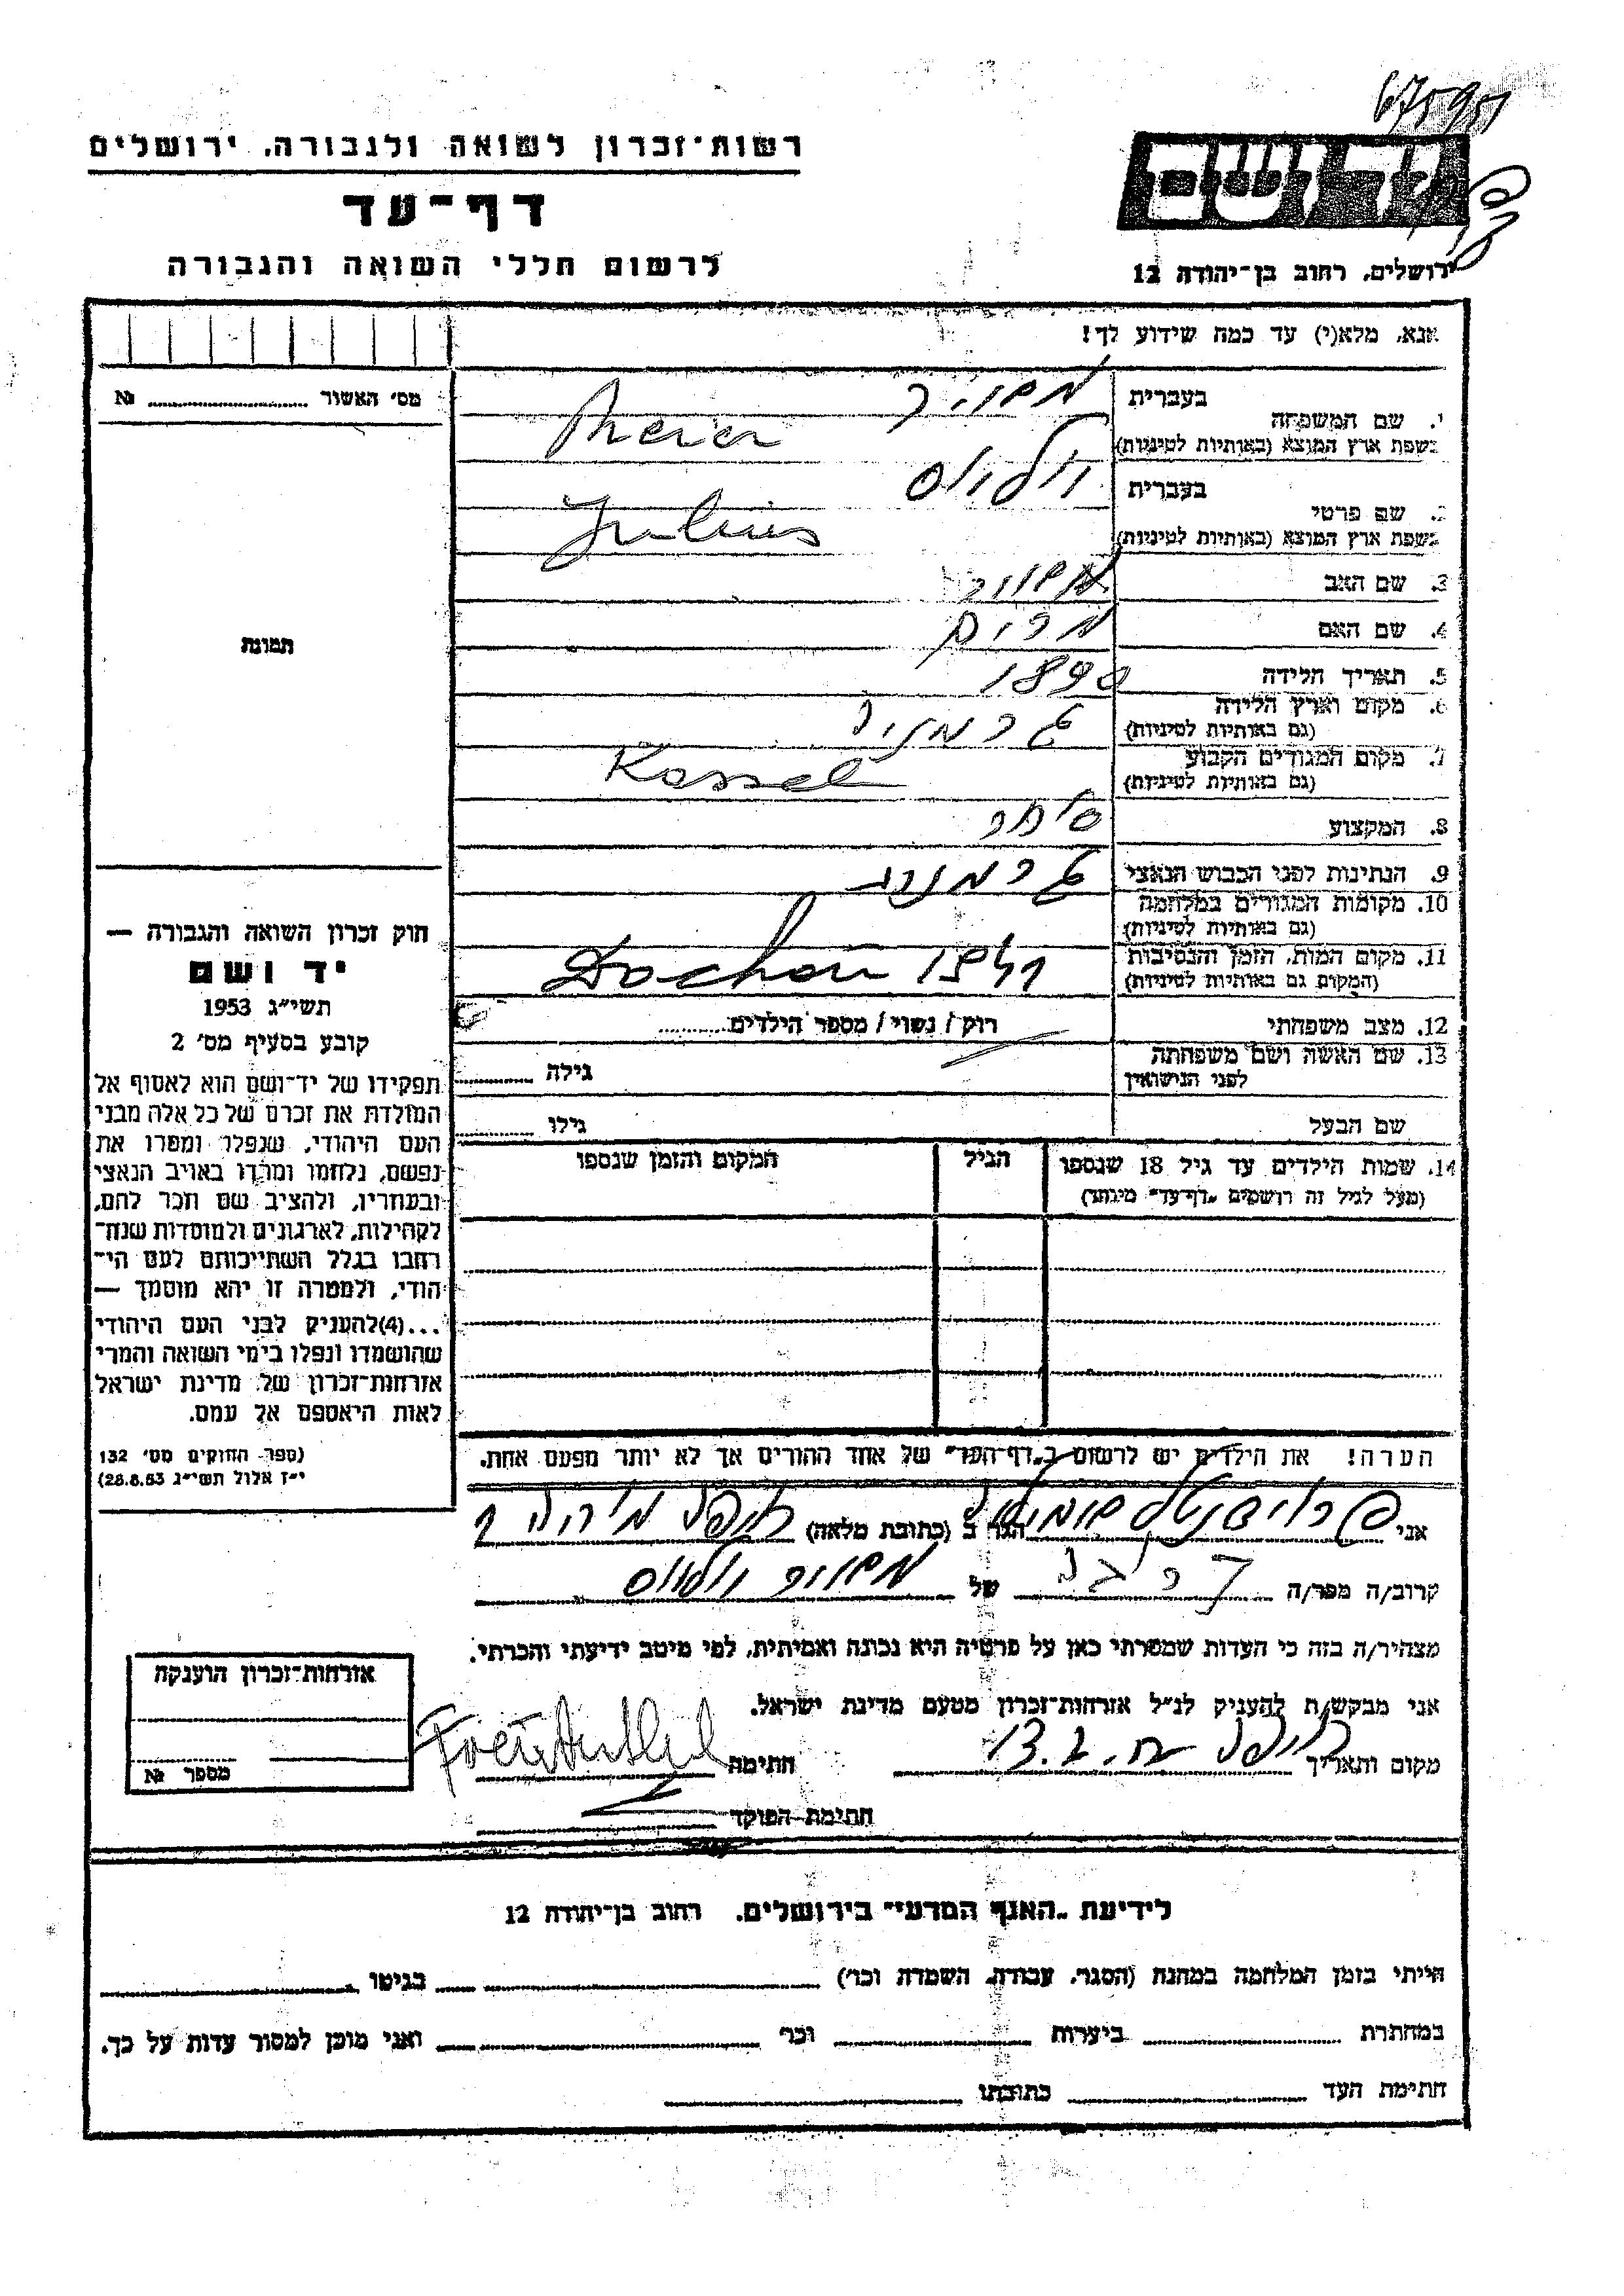 675951
רשות־זכרון לשואה ולגבורה, ירושלים
יד ושם
דף־עד
לרשום חללי השואה והגבורה
ירושלים, רחוב בן־יהודה 12
אנא, מלא(י) עד כמה שידוע לך!
מס׳ האשור № 
תמונה
1. שם המשפחה
בעברית
בשפת ארץ המוצא (באותיות לטיניות) Meier
2. שם פרטי
בעברית יוליוס
בשפת ארץ המוצא (באותיות לטיניות) Julius
3. שם האב
4. שם האם מרים
5. תאריך הלידה 1890
6. מקום וארץ הלידה גרמניה
(גם באותיות לטיניות)
7. מקום המגורים הקבוע Kassel
(גם באותיות לטיניות)
8. המקצוע סוחר
9. הנתינות לפני הכבוש הנאצי גרמנית
10. מקומות המגורים במלחמה
(גם באותיות לטיניות)
11. מקום המות, הזמן והנסיבות Dachau 1941
(המקום גם באותיות לטיניות)
12. מצב משפחתי רוק / נשוי / מספר הילדים
13. שם האשה ושם משפחתה
לפני הנישואין
גילה
שם הבעל
גילו
14. שמות הילדים עד גיל 18 שנספו
(מעל לגיל זה רושמים „דף־עד״ מיוחד)
הגיל
המקום והזמן שנספו
חוק זכרון השואה והגבורה —
יד ושם
תשי״ג 1953
קובע בסעיף מס׳ 2
תפקידו של יד־ושם הוא לאסוף אל
המולדת את זכרם של כל אלה מבני
העם היהודי, שנפלו ומסרו את
נפשם, נלחמו ומרדו באויב הנאצי
ובעוזריו, ולהציב שם וזכר להם,
לקהילות, לארגונים ולמוסדות שנח־
רבו בגלל השתייכותם לעם הי־
הודי, ולמטרה זו יהא מוסמך —
...(4)להעניק לבני העם היהודי
שהושמדו ונפלו בימי השואה והמרי
אזרחות־זכרון של מדינת ישראל
לאות היאספם אל עמם.
(ספר החוקים מס׳ 132
י״ז אלול תשי״ג 28.8.53)
הערה! את הילדים יש לרשום ב„דף־העד״ של אחד ההורים אך לא יותר מפעם אחת.
אני הגר ב (כתובת מלאה) חיפה
קרוב/ה מכר/ה של יוליוס
מצהיר/ה בזה כי העדות שמסרתי כאן על פרטיה היא נכונה ואמיתית, לפי מיטב ידיעתי והכרתי.
אני מבקש/ת להעניק לנ״ל אזרחות־זכרון מטעם מדינת ישראל.
מקום ותאריך חיפה חתימה
חתימת הפוקד
אזרחות־זכרון הוענקה
מספר №
לידיעת „האגף המדעי״ בירושלים, רחוב בן־יהודה 12
הייתי בזמן המלחמה במחנה (הסגר, עבודה, השמדה וכו׳) בגיטו
במחתרת ביערות וכו׳ ואני מוכן למסור עדות על כך.
חתימת העד כתובתו